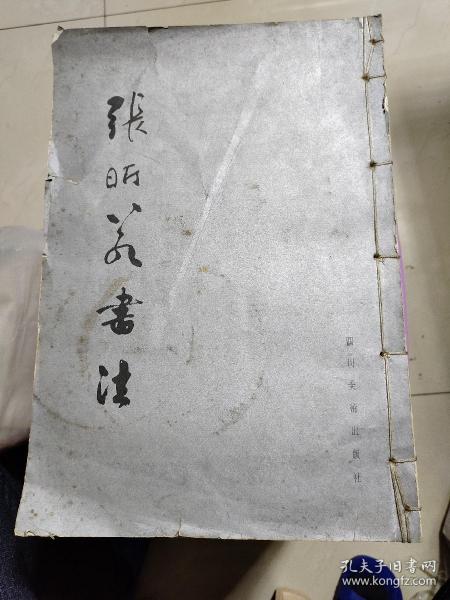 張昕若書法
四川美術出版社
孔夫子旧书网
www.kongfz.com